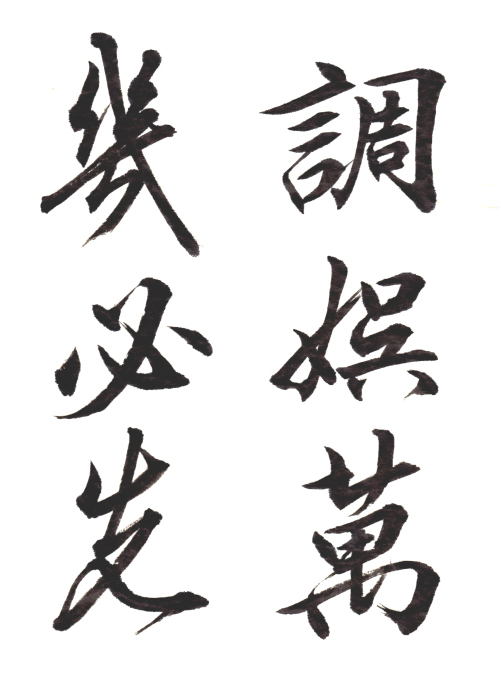 調娯萬
幾必先